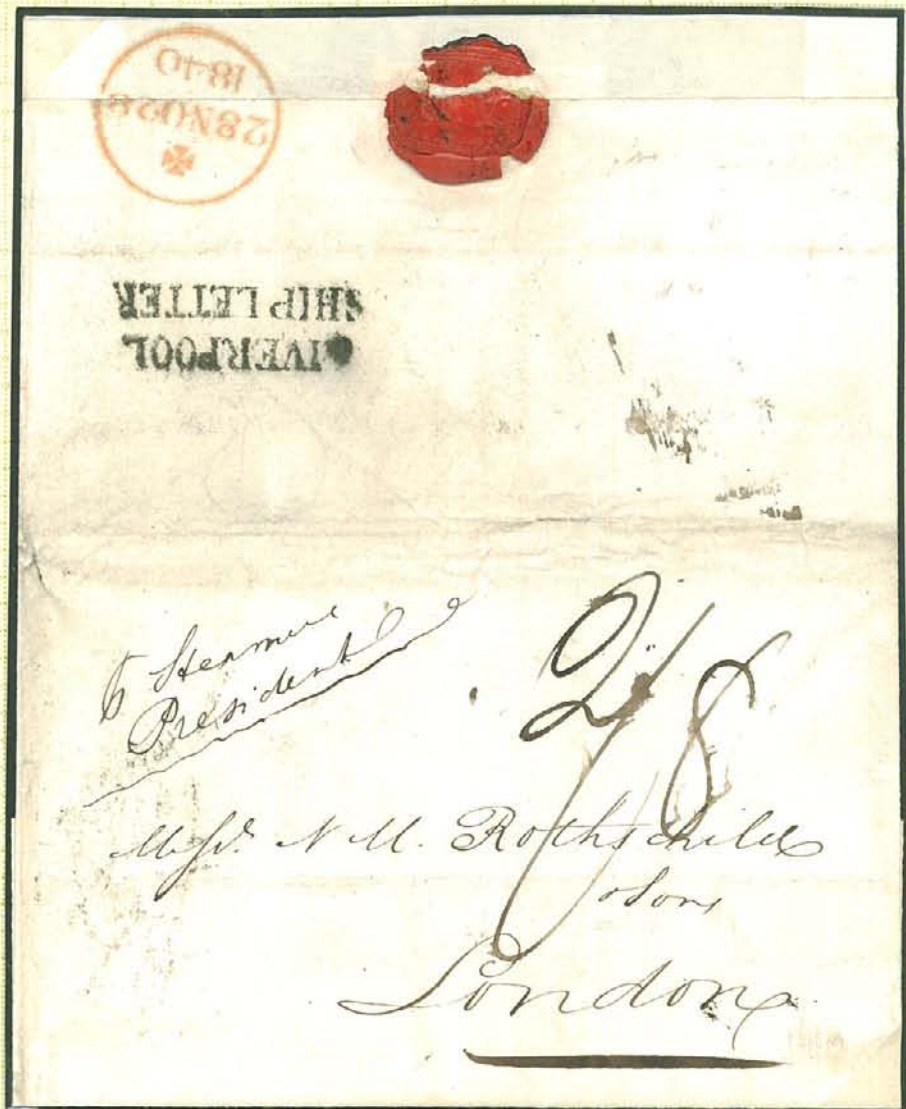 1840
28NO28
LIVERPOOL
SHIP LETTER
2/8
Steamer
President
Messrs. N M. Rothschild
& Sons
London